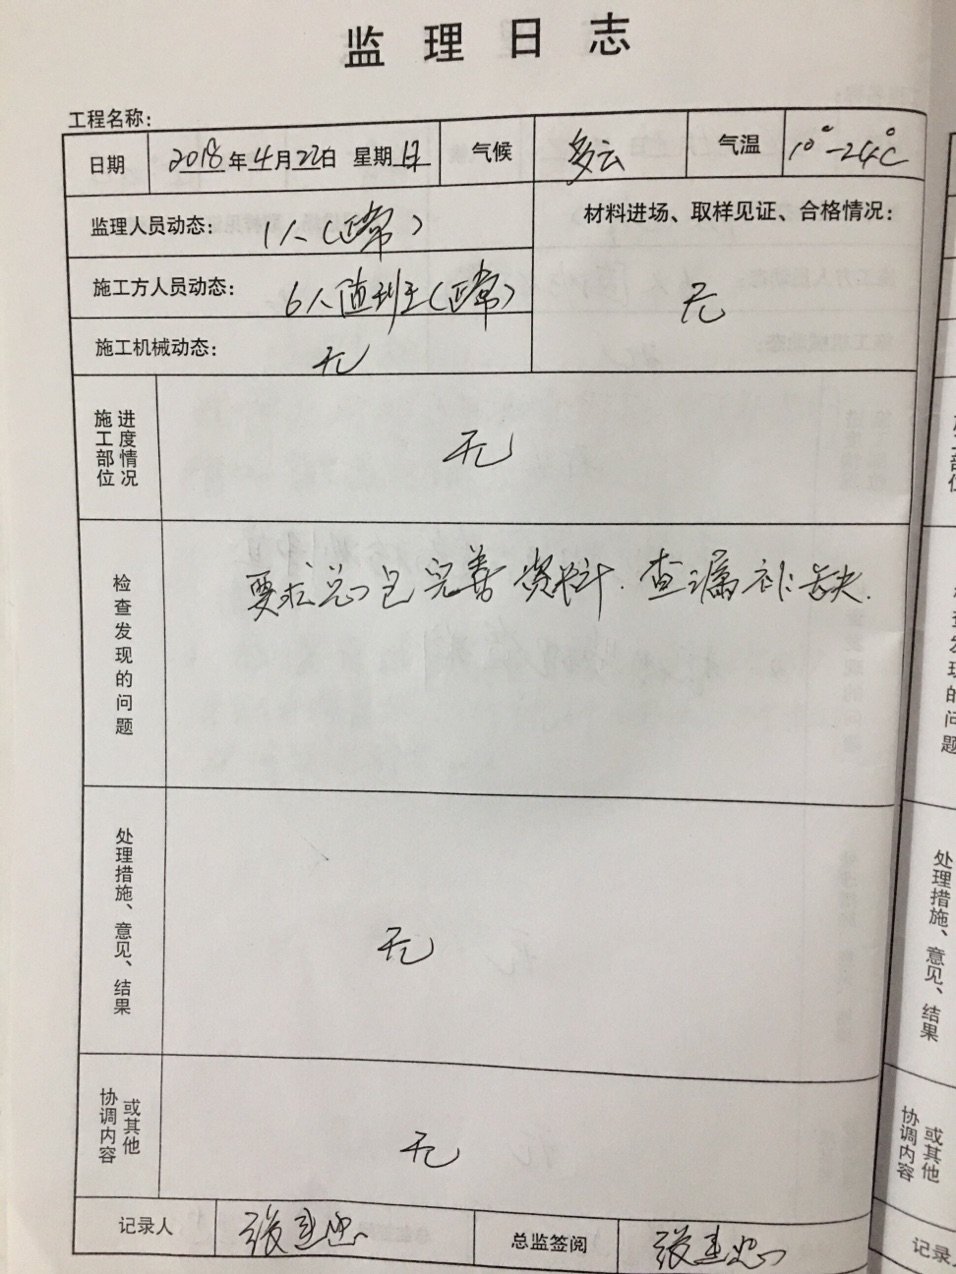 监理日志
工程名称:
日期 2018年4月22日 星期日 气候 多云 气温 10°-24℃
监理人员动态: 1人(正常)
材料进场、取样见证、合格情况:
施工方人员动态: 6人值班(正常)
无
施工机械动态: 无
施工部位
进度情况
无
检查发现的问题
要求总包完善资料.查漏补缺.
处理措施、意见、结果
无
协调内容
或其他
无
记录人 张建忠 总监签阅 张建忠
处理措施、意见、结果
协调内容
或其他
记录